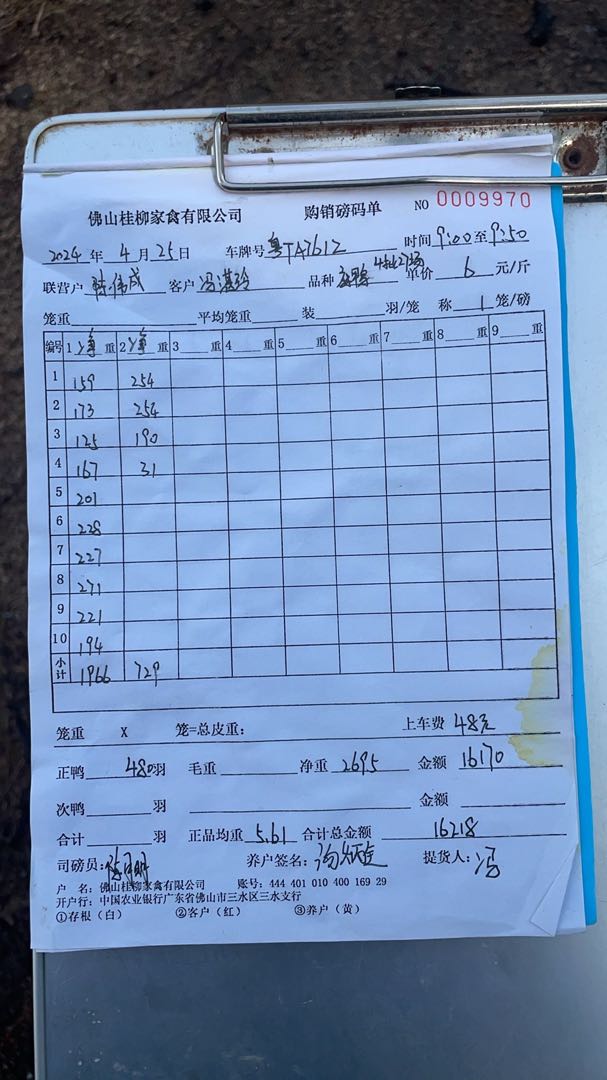 佛山桂柳家禽有限公司 购销磅码单 NO 0009970
2024 年 4 月 25 日 车牌号 粤TA7612 时间 9:00 至 9:50
联营户 陈伟成 客户 冯淇玲 品种 4批27场 单价 6 元/斤
笼重 平均笼重 装 羽/笼 称 1 笼/磅
编号 1 净 重 2 净 重 3 重 4 重 5 重 6 重 7 重 8 重 9 重
1 159 254
2 173 254
3 125 190
4 167 31
5 201
6 228
7 227
8 271
9 221
10 194
小计 1966 729
笼重 X 笼=总皮重: 上车费 48元
正鸭 480 羽 毛重 净重 2695 金额 16170
次鸭 羽 金额
合计 羽 正品均重 5.61 合计总金额 16218
司磅员: 养户签名: 提货人: 冯
户 名: 佛山桂柳家禽有限公司 账号: 444 401 010 400 169 29
开户行: 中国农业银行广东省佛山市三水区三水支行
①存根（白） ②客户（红） ③养户（黄）